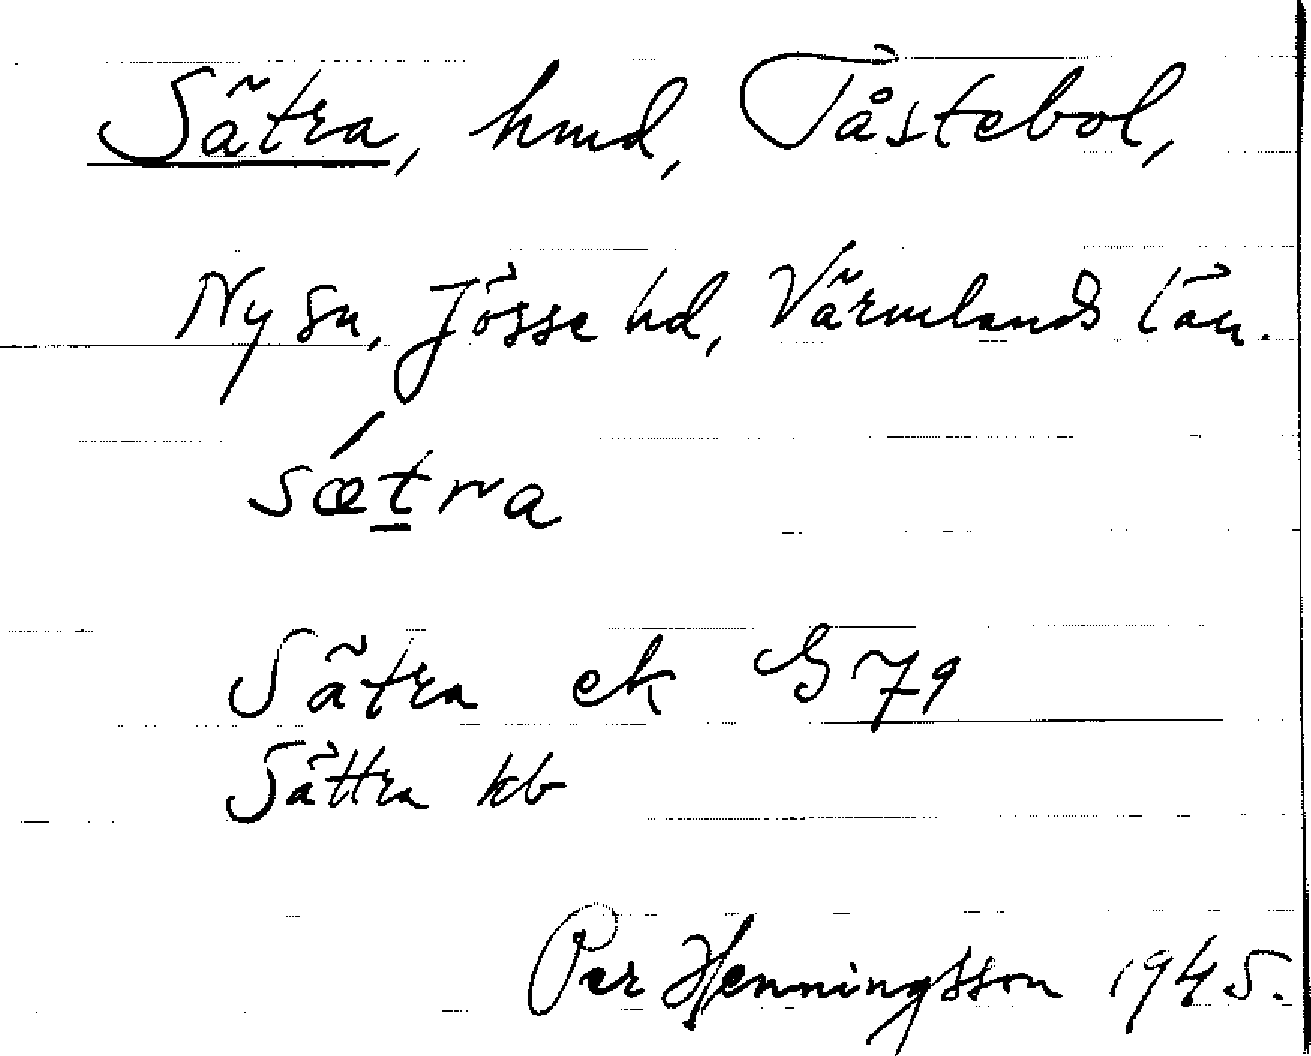 Sätra, hmd, Tåstebol,
Ny sn, Jösse hd, Värmlands län.
sǽt̲ra
Sätra ek G 79
Sättra kb
Per Henningsson 1945.